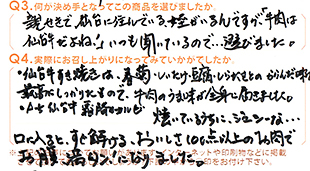 Q3.何が決め手となってこの商品を選びましたか。
親せきで、仙台に住んでいる姪がいるんですが、「牛肉は
仙台牛だよね!」いつも聞いているので…選びました。
Q4.実際にお召し上がりになってみていかがでしたか。
・仙台牛すき焼きは、春菊・しいたけ・豆腐・しらたきとの
最高がしっかりたもので、牛肉のうま味が全身に届きました。
仙台牛 霜降カルビ
焼いているうちに、ジューシーな…
口に入ると、すぐ溶ける。おいしさ100点以上のお肉で
お腹満タンになりました。